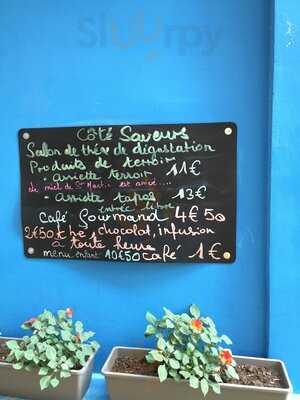 Sluurpy
Côté Saveurs
Sallon de thé x de dégustation
Produits de terroir
• Assiette terroir 11€
de miel de St Mart. est arrivé....
• Assiette tapas 13€
entrée libre
Café gourmand 4€50
2€50 thé, chocolat, infusion
à toute heure
menu enfant 10€50 Café 1€